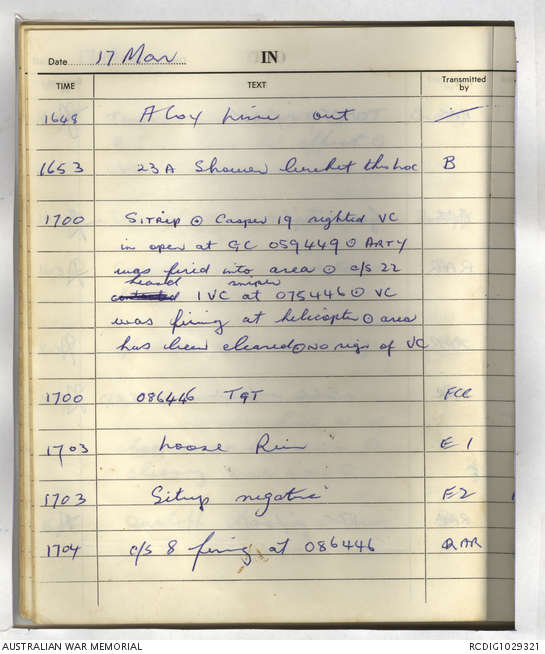 Date 17 Mar IN
TIME TEXT Transmitted by
1648 A Coy time out
1653 23A Shower bucket this loc B
1700 SITREP ⊙ Casper 19 sighted VC
in open at GC 059449 ⊙ ARTY
was fired into area ⊙ c/s 22
heard sniper
contacted 1 VC at 075446 ⊙ VC
was firing at helicopter ⊙ area
has been cleared ⊙ no sign of VC
1700 086446 TGT
1703 Loose E1
1703 Sitrep negative E2
1704 c/s 8 firing at 086446 RAR
AUSTRALIAN WAR MEMORIAL RCDIG1029321